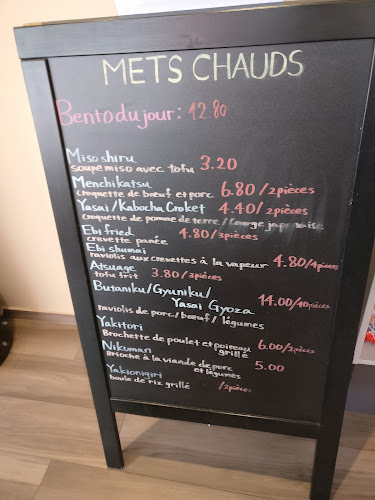 METS CHAUDS
Bento du jour: 12.80
Miso shiru 3.20
soupe miso avec tofu
Menchikatsu 6.80/2pièces
Croquette de bœuf et porc
Yasai/Kabocha Croket 4.40/2pièces
Croquette de pomme de terre/Courge japonaise
Ebi fried 4.80/3pièces
crevette panée
Ebi shumai 4.80/4pièces
raviolis aux crevettes à la vapeur
Atsuage 3.80/3pièces
tofu frit
Butaniku/Gyuniku/
Yasai Gyoza 14.00/10pièces
raviolis de porc/bœuf/légumes
Yakitori 6.00/2pièces
Brochette de poulet et poireau
grillé
Nikuman 5.00
Brioche à la viande de porc
et légumes
Yakionigiri /2pièces
boule de riz grillé